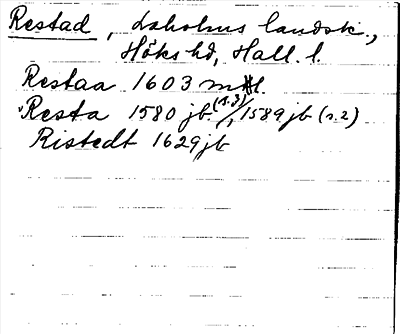 Restad, Laholms landsk.,
Höks hd, Hall. l.
Restaa 1603 mtl.
Resta 1580 jb (s. 3), 1589 jb (s. 2)
Ristedt 1629 jb